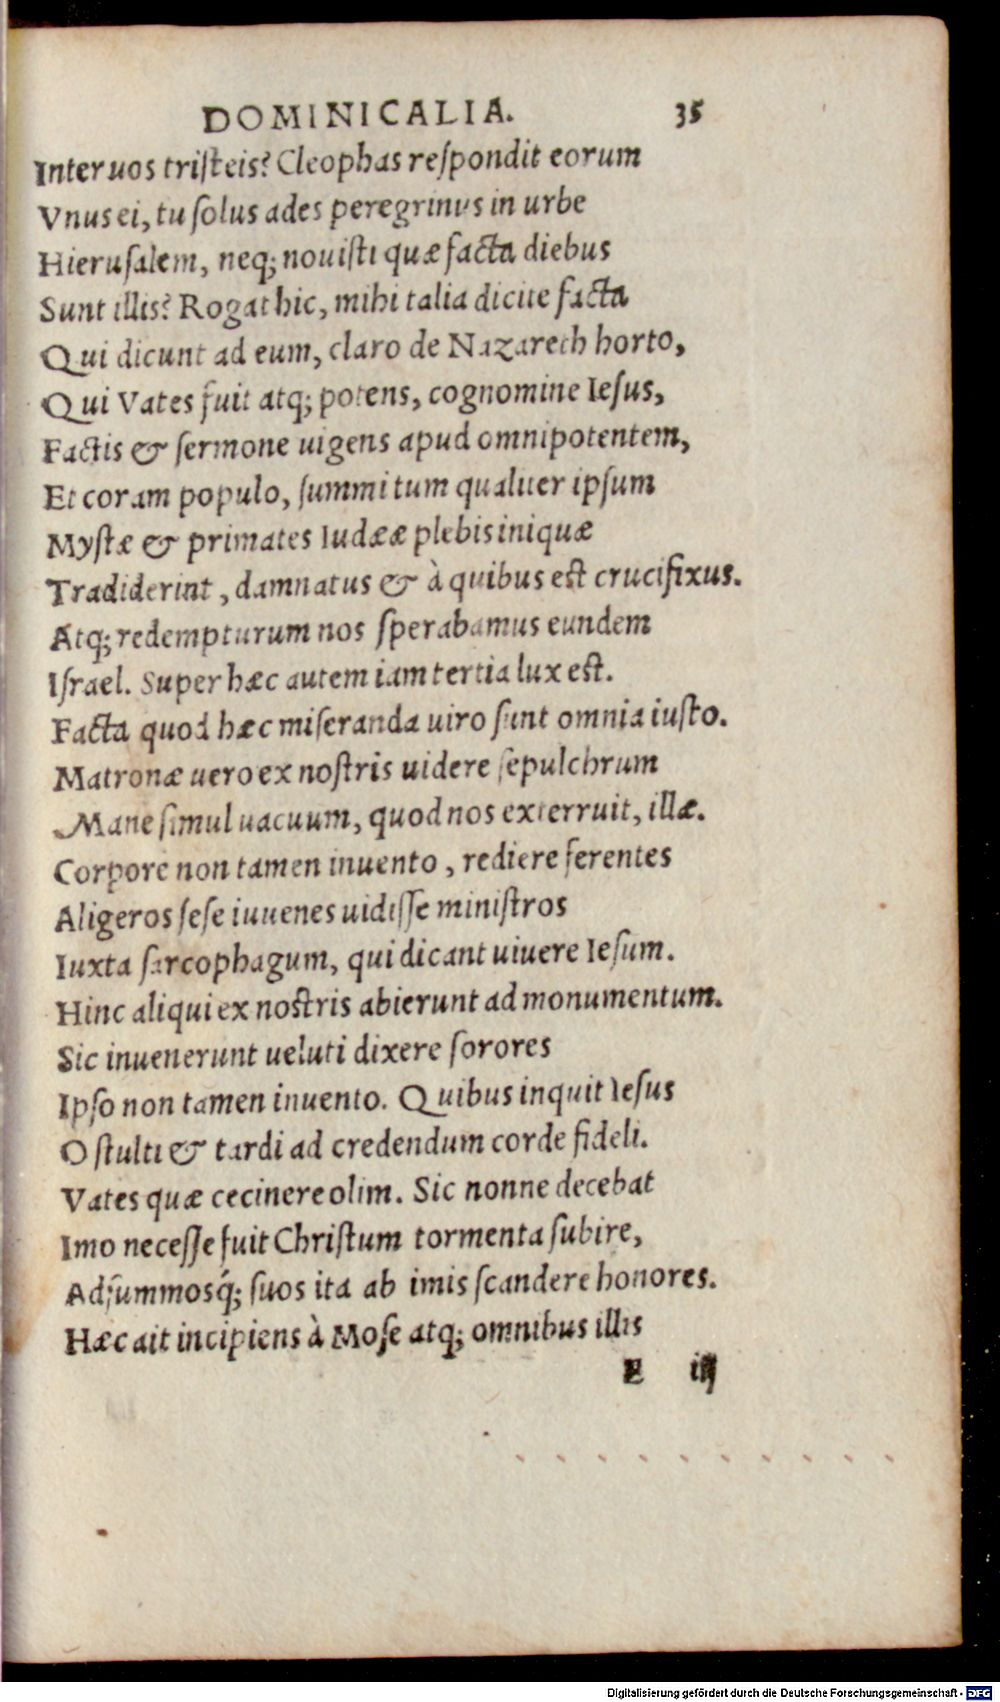 DOMINICALIA. 35
Inter uos tristeis? Cleophas respondit eorum
Vnus ei, tu solus ades peregrinus in urbe
Hierusalem, neq; nouisti quæ facta diebus
Sunt illis? Rogat hic, mihi talia dicite facta
Qui dicunt ad eum, claro de Nazareth horto,
Qui Vates fuit atq; potens, cognomine Iesus,
Factis & sermone uigens apud omnipotentem,
Et coram populo, summi tum qualiter ipsum
Mystæ & primates Iudææ plebis iniquæ
Tradiderint, damnatus & à quibus est crucifixus.
Atq; redempturum nos sperabamus eundem
Israel. Super hæc autem iam tertia lux est.
Facta quod hæc miseranda uiro sunt omnia iusto.
Matronæ uero ex nostris uidere sepulchrum
Mane simul uacuum, quod nos exterruit, illæ.
Corpore non tamen inuento, rediere ferentes
Aligeros sese iuuenes uidisse ministros
Iuxta sarcophagum, qui dicant uiuere Iesum.
Hinc aliqui ex nostris abierunt ad monumentum.
Sic inuenerunt ueluti dixere sorores
Ipso non tamen inuento. Quibus inquit Iesus
O stulti & tardi ad credendum corde fideli.
Vates quæ cecinere olim. Sic nonne decebat
Imo necesse fuit Christum tormenta subire,
Ad summosq́; suos ita ab imis scandere honores.
Hæc ait incipiens à Mose atq; omnibus illis
E iij
Digitalisierung gefördert durch die Deutsche Forschungsgemeinschaft - DFG